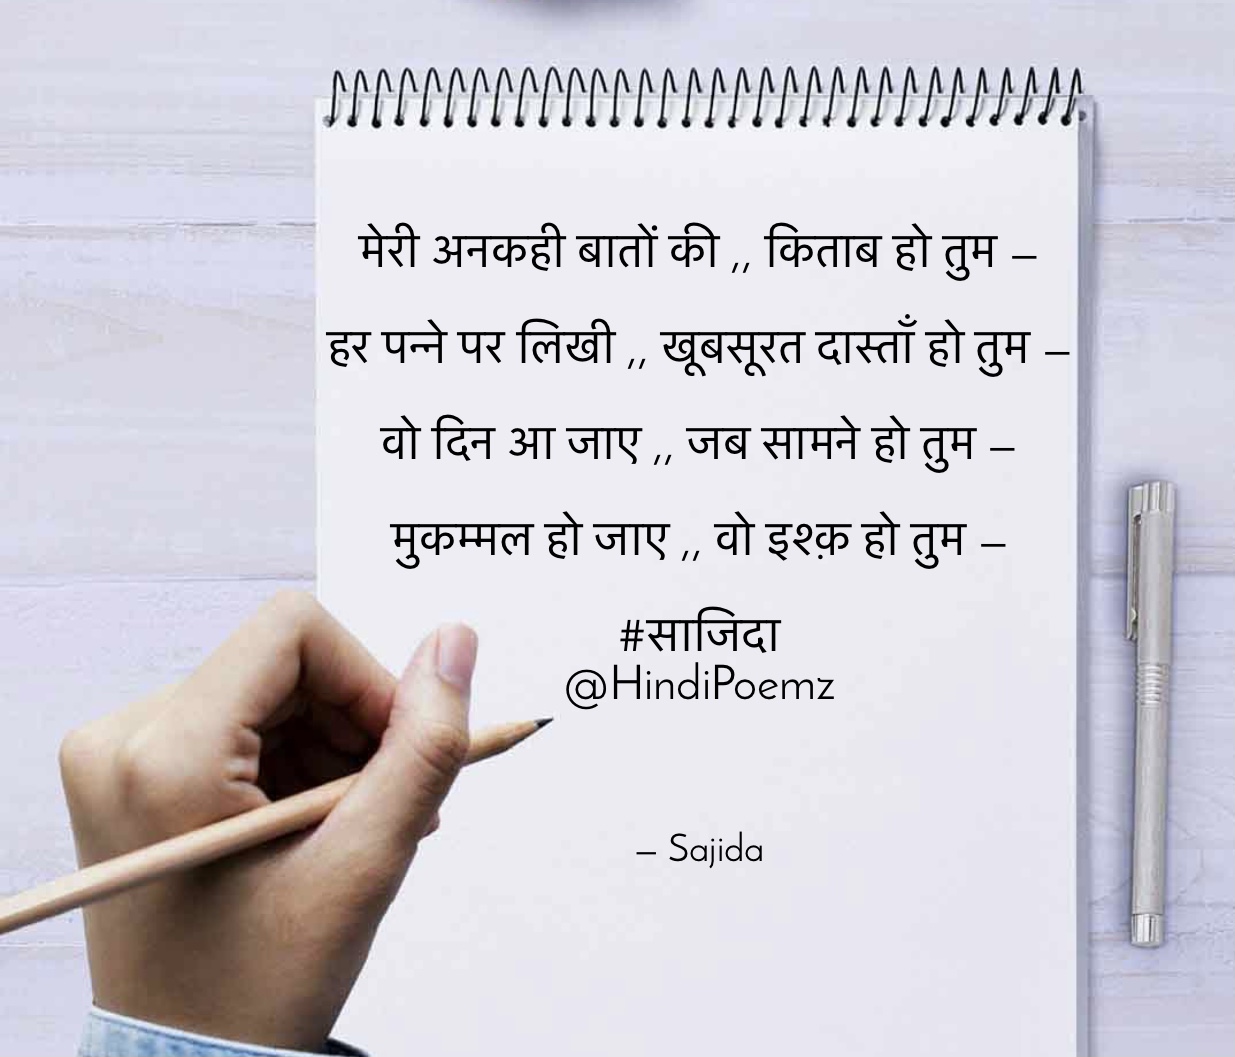 मेरी अनकही बातों की ,, किताब हो तुम –
हर पन्ने पर लिखी ,, खूबसूरत दास्ताँ हो तुम –
वो दिन आ जाए ,, जब सामने हो तुम –
मुकम्मल हो जाए ,, वो इश्क़ हो तुम –
#साजिदा
@HindiPoemz
– Sajida